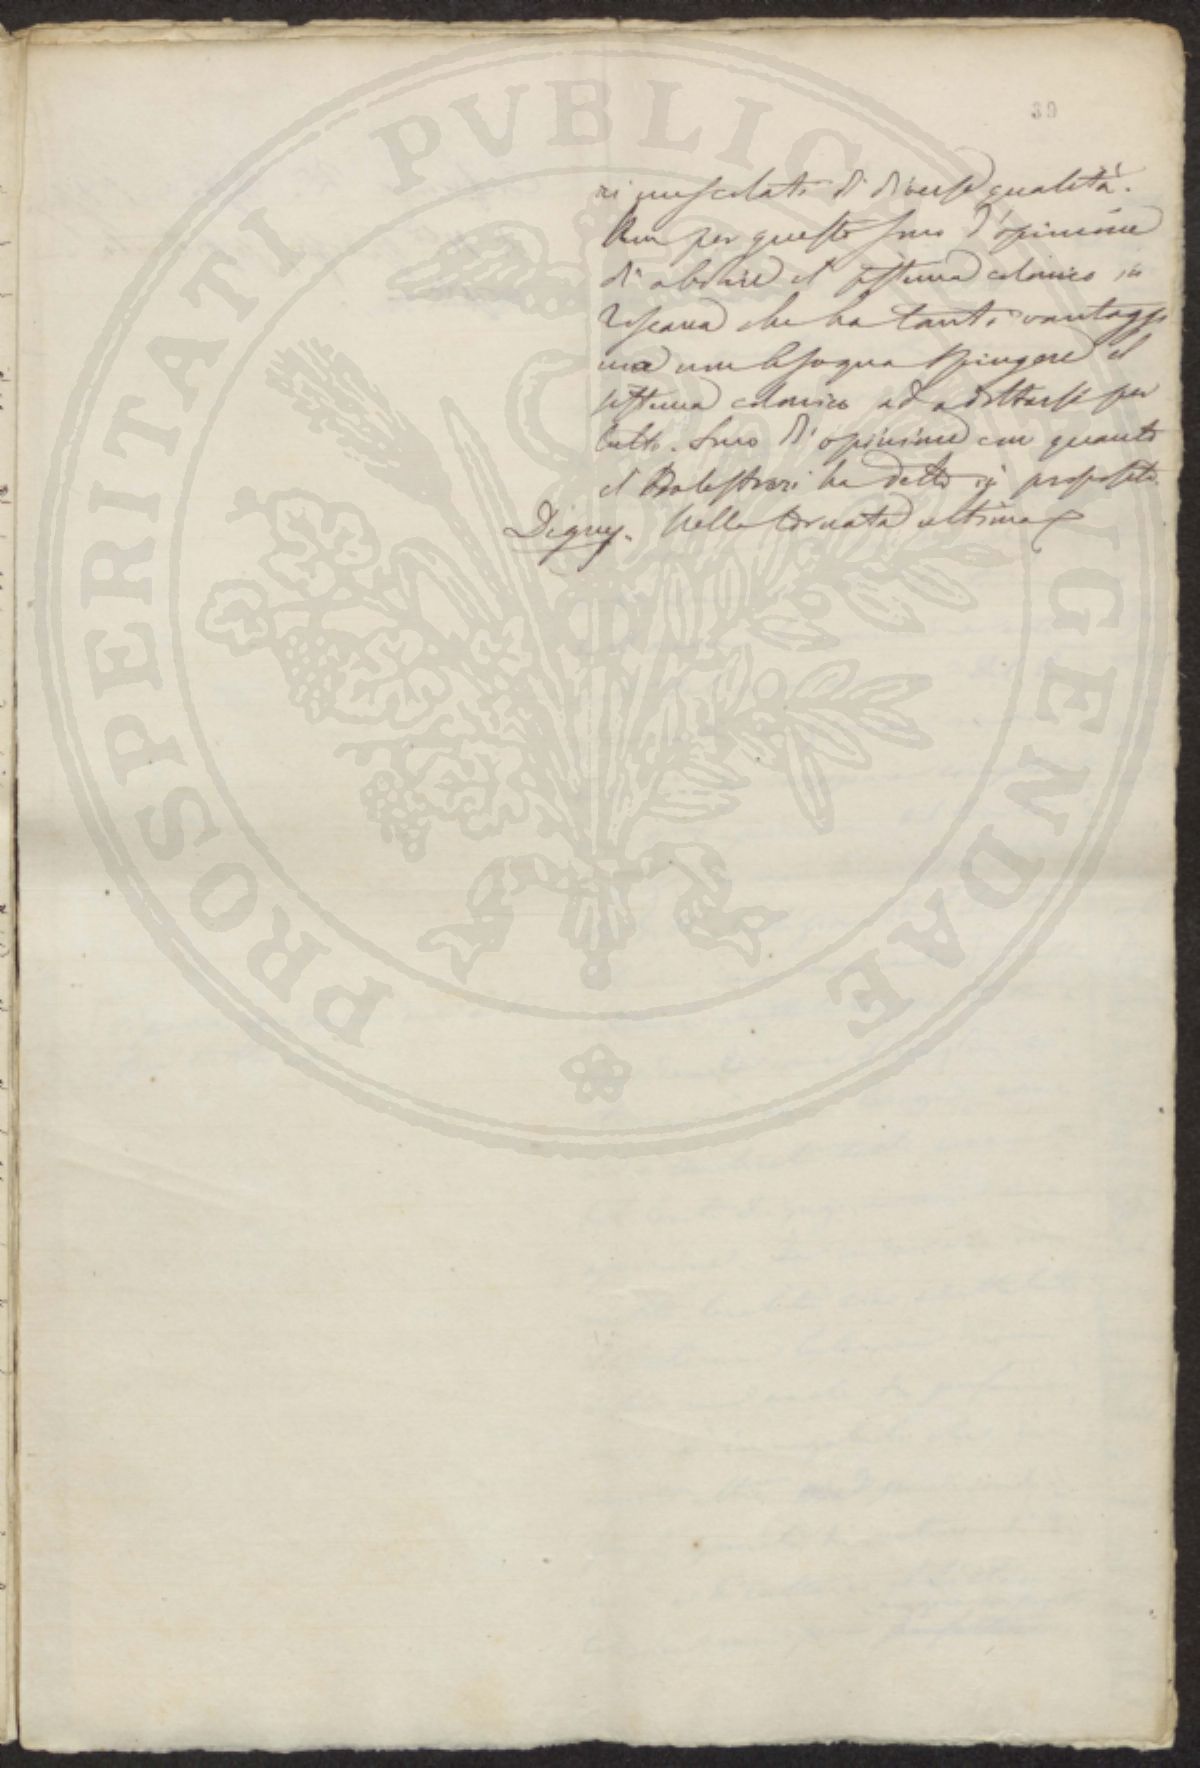 39
ri mescolati di diverse qualità.
Non per questo sono d'opinione
di abolire il sistema colonico in
Toscana che ha tanti vantaggi
ma non bisogna spingere il
sistema colonico ad adottarsi per
tutto. Sono di opinione con quanto
il Balestrieri ha detto in proposito.
Digny. Nella tornata ultima
PROSPERITATI PVBLICAE AVGENDAE